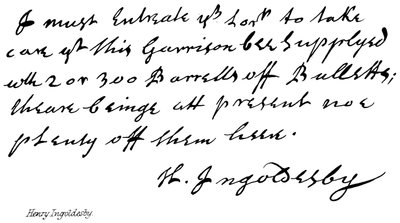 I must Entreate yr Lorp to take
care yt this Garrison bee Supplyed
wth 2 or 300 Barrells off Bulletts;
theare beinge att present noe
plenty off them heere.
H. Ingoldesby
Henry Ingoldesby.